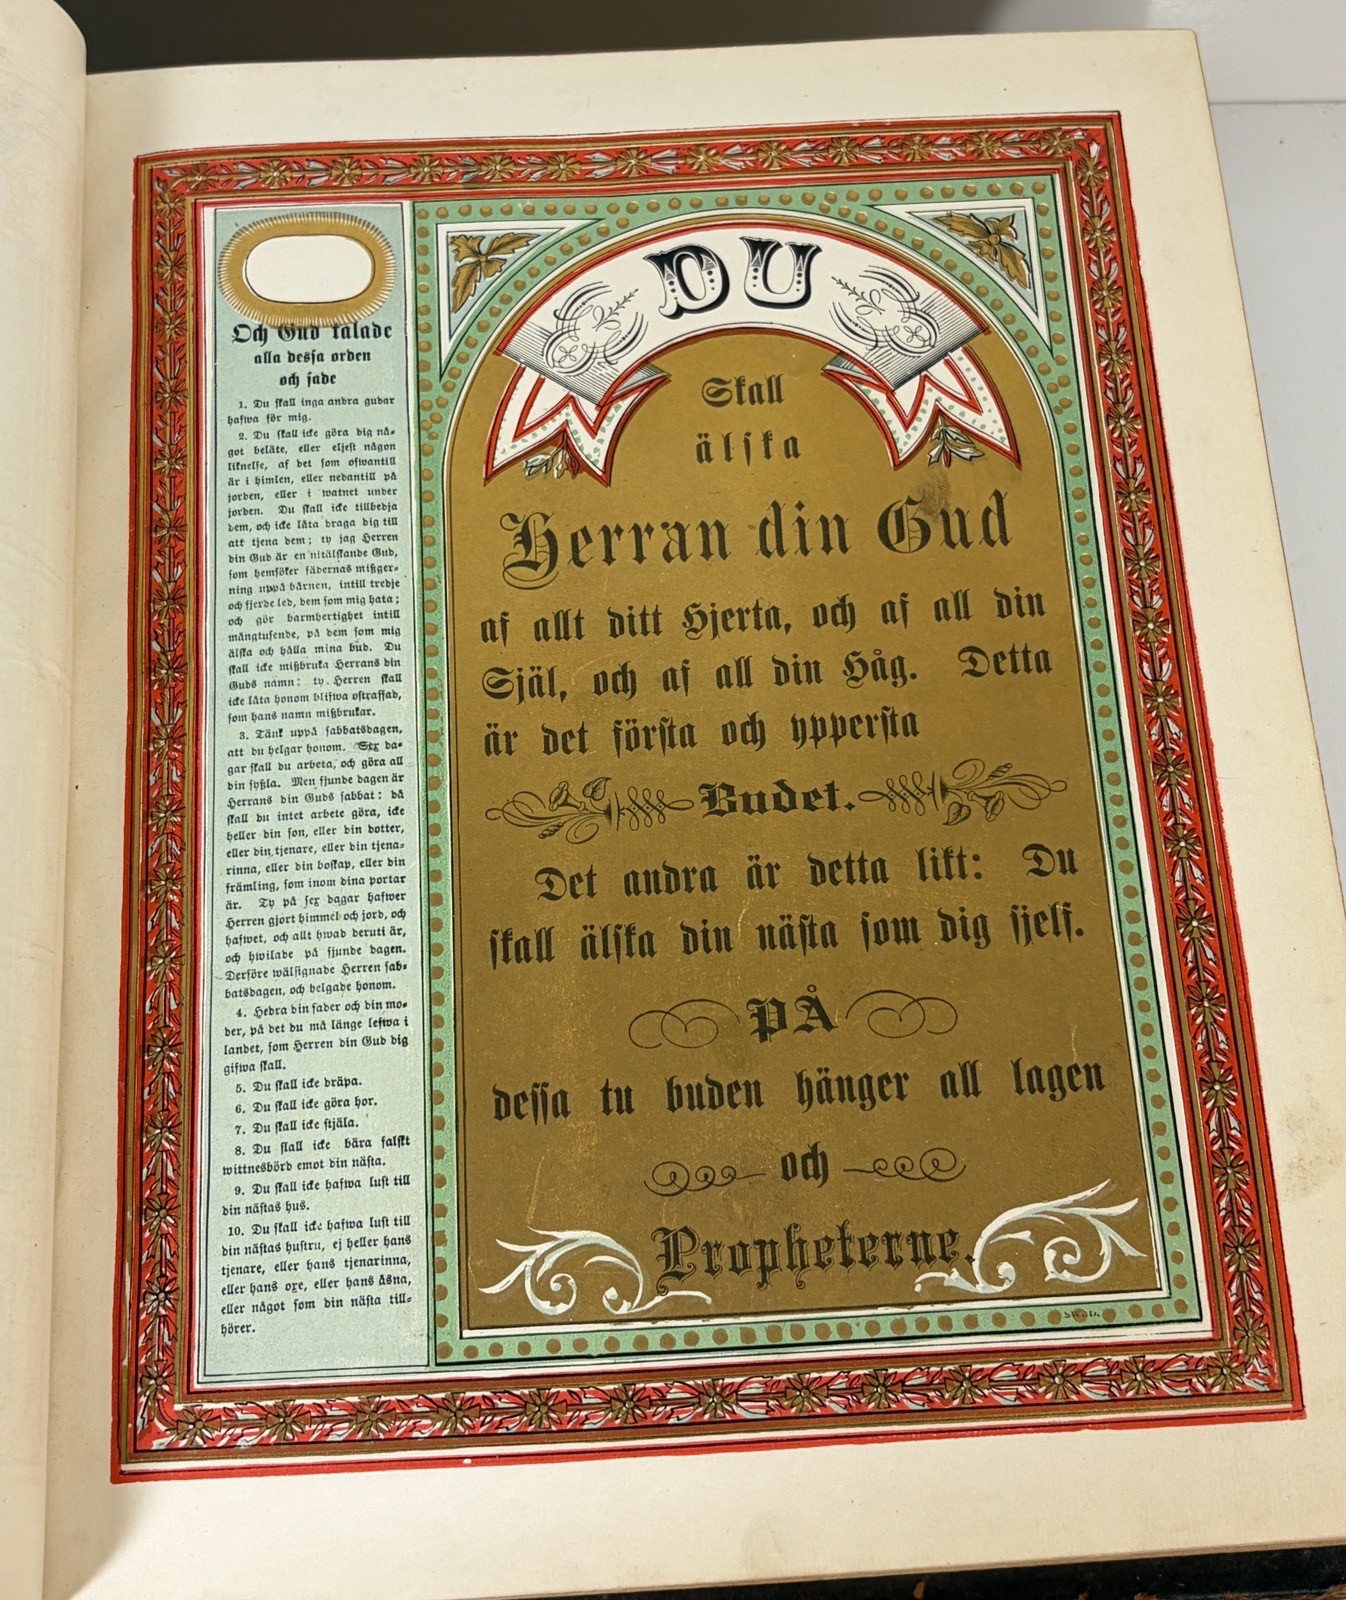 Och Gud talade
alla dessa orden
och sade
1. Du skall inga andra gudar
hafwa för mig.
2. Du skall icke göra dig nå-
got beläte, eller eljest någon
liknelse, af det som ofwantill
är i himlen, eller nedantill på
jorden, eller i watnet under
jorden. Du skall icke tillbedja
dem, och icke låta draga dig till
att tjena dem; ty jag Herren
din Gud är en nitälskande Gud,
som hemsöker fädernas missger-
ning uppå barnen, intill tredje
och fjerde led, dem som mig hata;
och gör barmhertighet intill
mångtusende, på dem som mig
älska och hålla mina bud. Du
skall icke missbruka Herrans din
Guds namn: ty Herren skall
icke låta honom blifwa ostraffad,
som hans namn missbrukar.
3. Tänk uppå sabbatsdagen,
att du helgar honom. Sex da-
gar skall du arbeta, och göra all
din syssla. Men sjunde dagen är
Herrans din Guds sabbat: då
skall du intet arbete göra, icke
heller din son, eller din dotter,
eller din tjenare, eller din tjena-
rinna, eller din boskap, eller din
främling, som inom dina portar
är. Ty på sex dagar hafwer
Herren gjort himmel och jord, och
hafwet, och allt hwad deruti är,
och hwilade på sjunde dagen.
Derföre wälsignade Herren sab-
batsdagen, och helgade honom.
4. Hedra din fader och din mo-
der, på det du må länge lefwa i
landet, som Herren din Gud dig
gifwa skall.
5. Du skall icke dräpa.
6. Du skall icke göra hor.
7. Du skall icke stjäla.
8. Du skall icke bära falskt
wittnesbörd emot din nästa.
9. Du skall icke hafwa lust till
din nästas hus.
10. Du skall icke hafwa lust till
din nästas hustru, ej heller hans
tjenare, eller hans tjenarinna,
eller hans oxe, eller hans åsna,
eller något som din nästa till-
hörer.
DU
Skall
älska
Herran din Gud
af allt ditt Hjerta, och af all din
Själ, och af all din Håg. Detta
är det första och yppersta
Budet.
Det andra är detta likt: Du
skall älska din nästa som dig sjelf.
PÅ
dessa tu buden hänger all lagen
och
Propheterne.